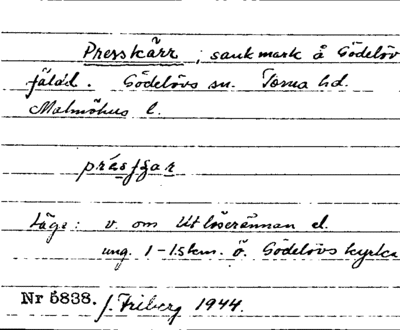 Presskärr, sank mark å Gödelöv
fälad. Gödelövs sn. Torna hd.
Malmöhus l.
Läge: v. om Utlöserännan el.
ung. 1-1.5 km. ö. Gödelövs kyrka
Nr 5838. f. Friberg 1944.